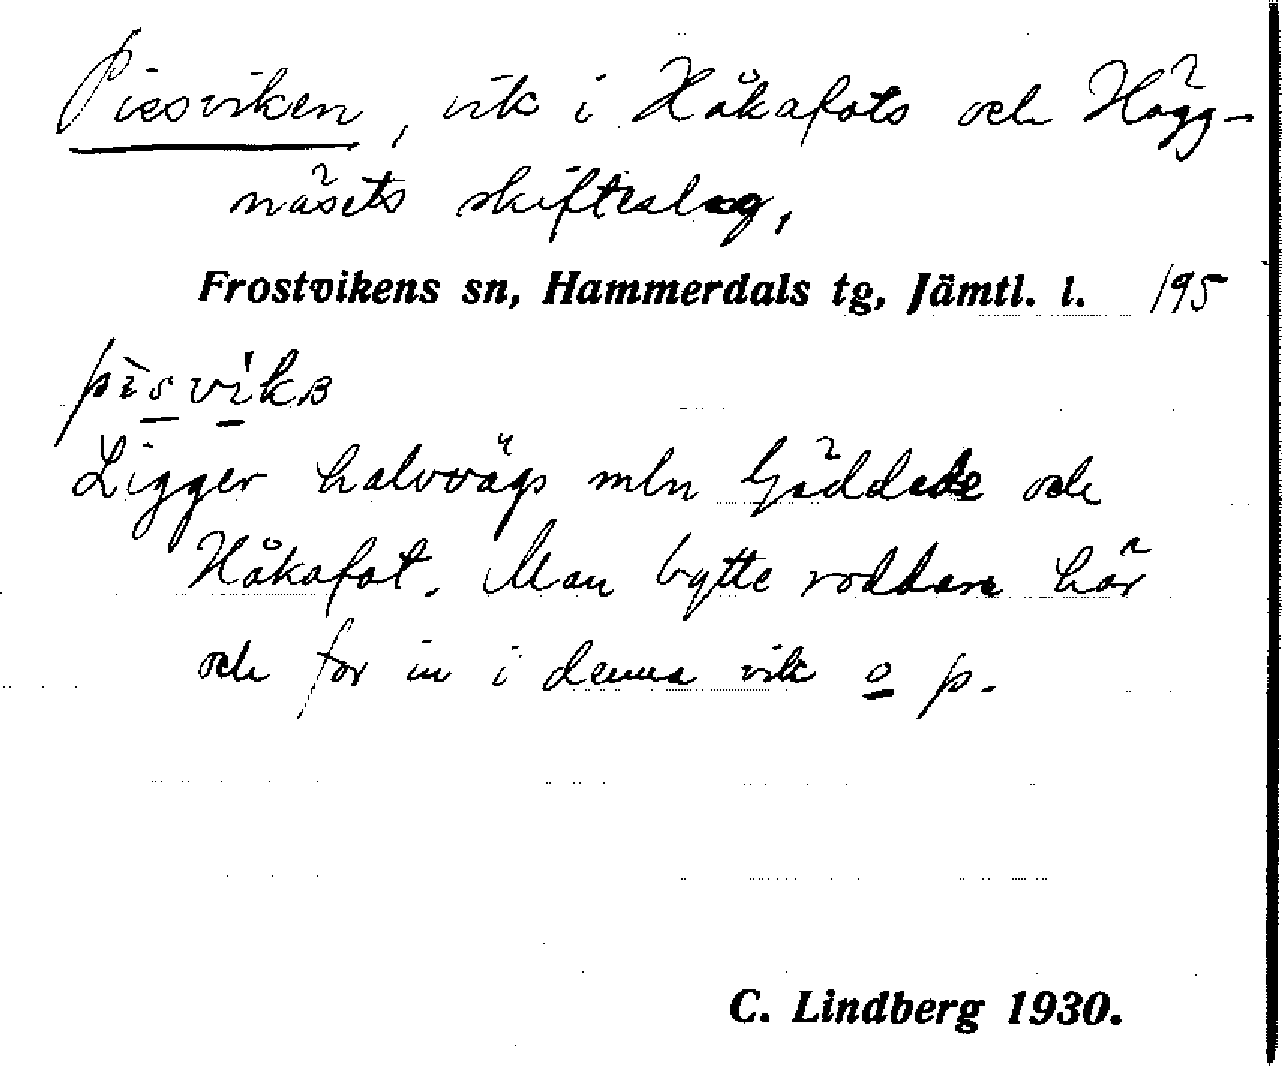 Pissviken, vik i Håkafots och Högg-
näsets skifteslag,
Frostvikens sn, Hammerdals tg, Jämtl. l. 195
Ligger halvvägs mln Gäddede och
Håkafot. Man bytte roddare här
och for in i denna vik o p.
C. Lindberg 1930.